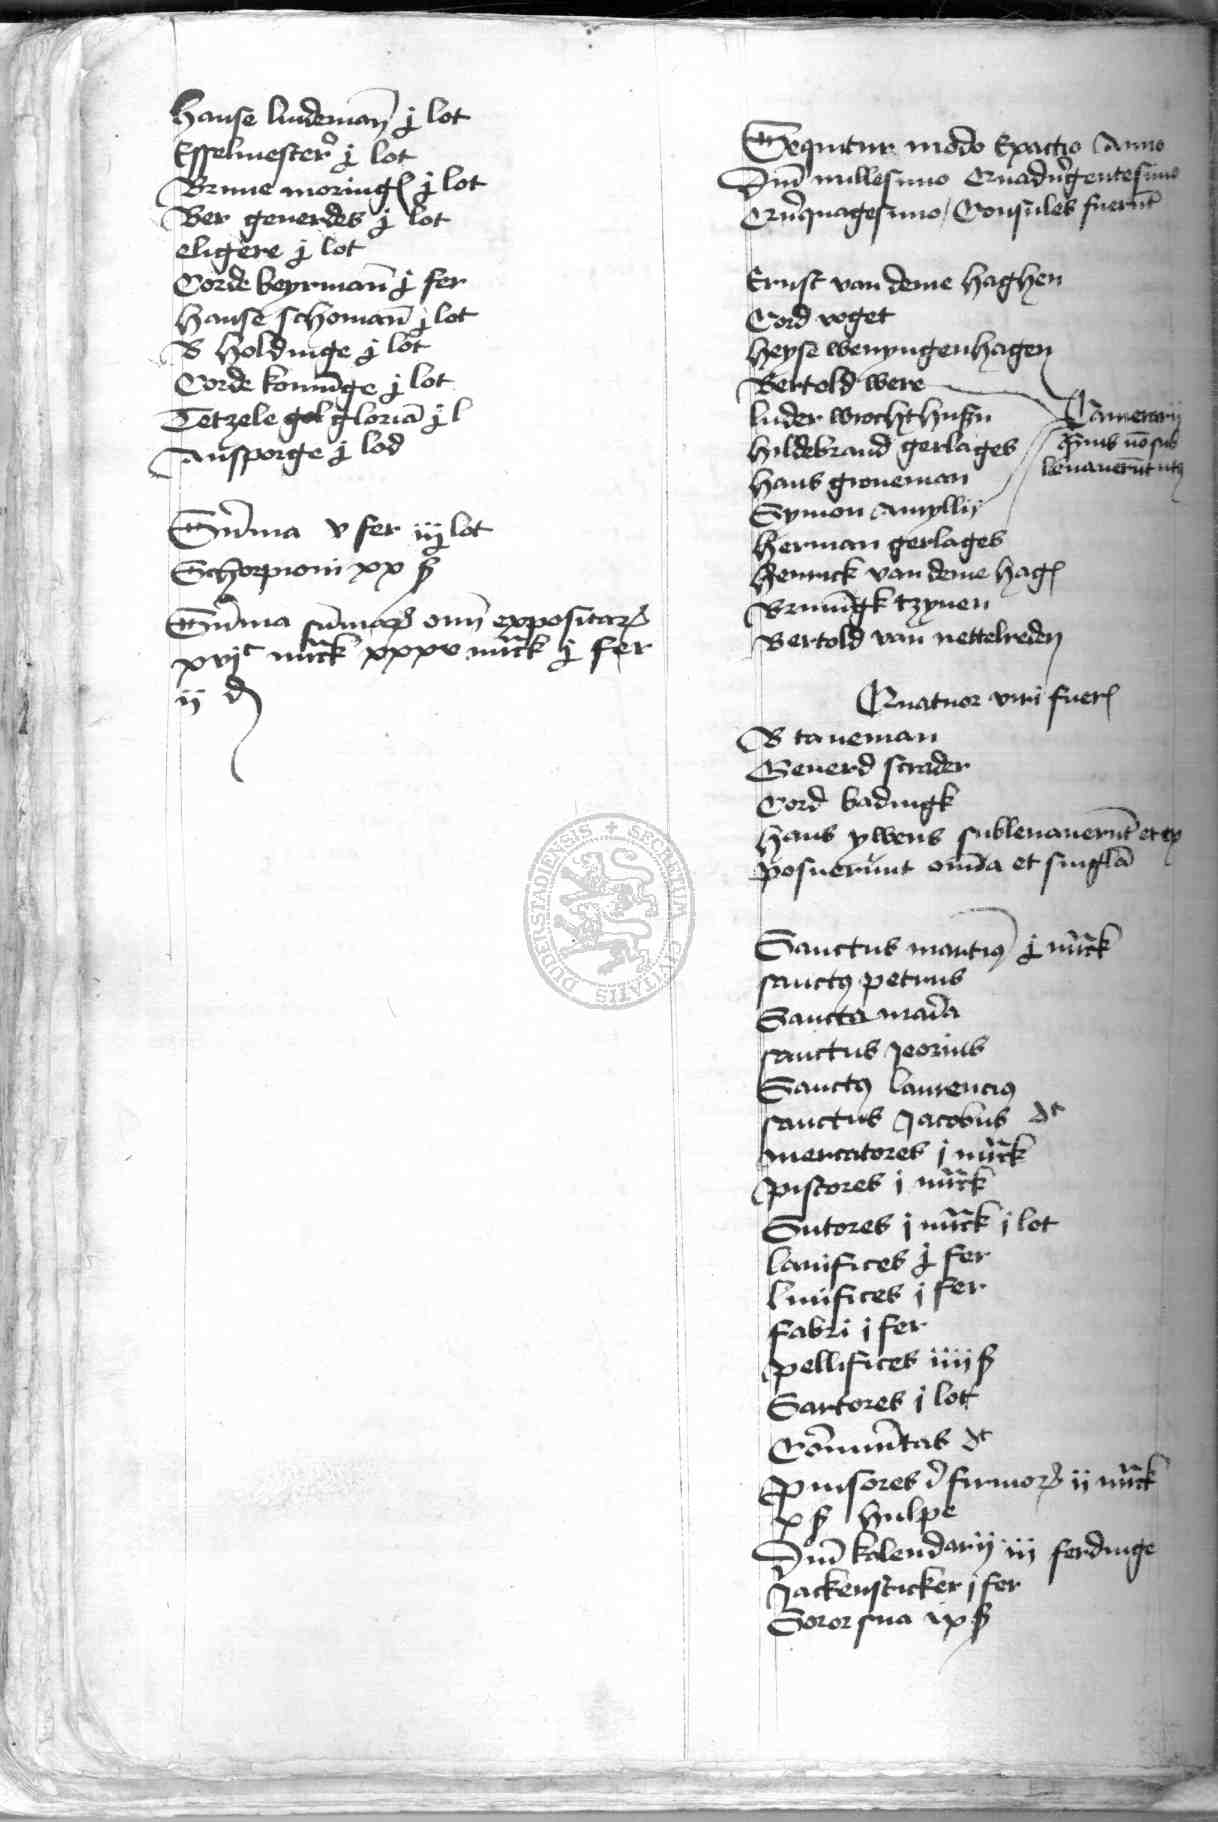 hanse lindeman j lot
Esselmester j lot
Brune moring j lot
Ber geuerdes j lot
eligere j lot
Corde beyrman j fer
hanse schoman j lot
B holdinge j lot
Corde koninge j lot
Tetzele gloria j l
Ansporge j lod
Sūma v fer iij lot
Schorpioni xx ß
Sūma sūmaꝝ om expositaꝝ
xvjc mrck xxxv mrck j fer
ij d
Sequitur modo Exactio Anno
Dni millesimo Quadringentesimo
Quinquagesimo / Consules fuerūt
Ernst van deme haghen
Cord voget
heyse wenyngenhagen
Bertold were
luder wochthusen
hildebrand gerlages
hans groneman
Symon Amyllij
herman gerlages
henrick van deme hag
Bruningk tzynen
Bertold van nettelreden
Camerarij
prius nō sub
leuauerūt
Quatuor viri fuer
B taneman
Geuerd scrader
Cord badingk
hans ylwens subleuauerūt et ex
posuerunt omīa et singlā
Sanctus martinꝰ j mrck
sanctꝰ petrus
Sancta maria
sanctus Jeorius
Sanctꝰ laurenciꝰ
sanctus Jacobus dt
mercatores j mrck
pistores j mrck
Sutores j mrck j lot
lanifices j fer
linifices j fer
fabri j fer
pellifices iiij ß
Sartores j lot
Cōmunitas dt
Pruisores īfirmoꝝ ij mrck
x ß hulpe
Dni kalendarij iij ferdinge
Jackensticker j fer
Soror sua ix ß
SECRETUM CIVITATIS DUDERSTADIENSIS